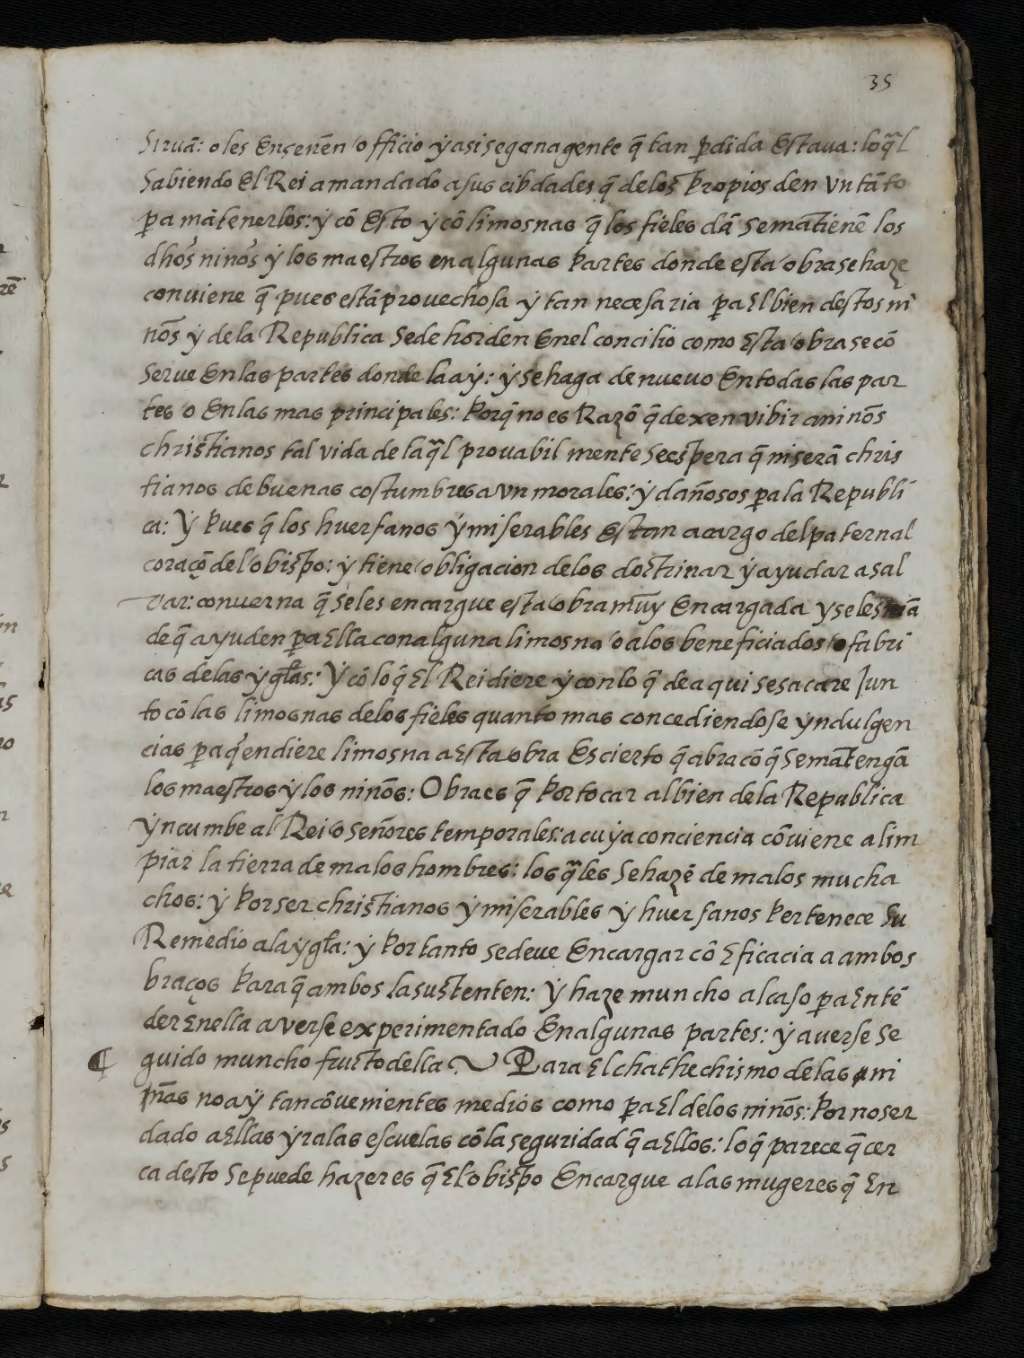 35
Siruā: o les Enseñen officio ẏ asi se gana gente q̄ tan ꝑdida Estaua: lo q̄l
Sabiendo El Rei a mandado a sus cibdades q̄ de los Propios den Vn tāto
ꝑa mātenerlos: ẏ cō Esto ẏ cō limosnas q̄ los fieles dā Se matienē los
dhos niños ẏ los maestros en algunas Partes donde esta obra se haze
conuiene q̄ pues estā prouechosa ẏ tan necesaria ꝑa El bien destos ni
ños ẏ de la Republica Se de horden En el concilio como Esta obra se cō
Serue En las partes donde la aẏ: ẏ se haga de nueuo En todas las par
tes o En las mas principales: Porq̄ no es Razō q̄ dexen vibir a niños
christianos tal vida de la q̄l prouabilmente Se espera q̄ ni serā chris
tianos de buenas costumbres a vn morales: ẏ dañosos ꝑa la Republi
ca: Ẏ Pues q̄ los huerfanos ẏ miserables Estan a cargo del paternal
coraçō del obispo: ẏ tiene obligacion de los doctrinar ẏ ayudar a sal
var: conuerna q̄ Se les encargue esta obra muẏ Encargada y se les
de q̄ ayuden ꝑa Ella con alguna limosna o a los beneficiados o fabri
cas de las ẏglas: Ẏ cō lo q̄ El Rei diere ẏ con lo q̄ de aqui se sacare Jun
to cō las limosnas de los fieles quanto mas concediendose ẏndulgen
cias ꝑa q̄en diere limosna a Esta obra Es cierto q̄ abra cō q̄ Se mātengā
los maestros ẏ los niños: Obra es q̄ Por tocar al bien de la Republica
ẏncumbe al Rei o señores temporales: a cuẏa conciencia cōuiene alim
piar la tierra de malos hombres: los q̄les Se hazē de malos mucha
chos: ẏ Por ser christianos ẏ miserables ẏ huerfanos Pertenece Su
Remedio a la ẏgla: ẏ Por tanto se deue Encargar cō Eficacia a ambos
braços Para q̄ ambos la sustenten: ẏ haze muncho al caso ꝑa Entē
der En ella averse experimentado En algunas partes: ẏ averse Se
¶ guido muncho fructo della. Para El chathechismo de las ni
ñas no aẏ tan cōuenientes medios como ꝑa El de los niños: Por no ser
dado a Ellas ẏr a las escuelas cō la seguridad q̄ a Ellos: lo q̄ parece q̄ cer
ca desto Se puede hazer es q̄ El obispo Encargue a las mugeres q̄ En